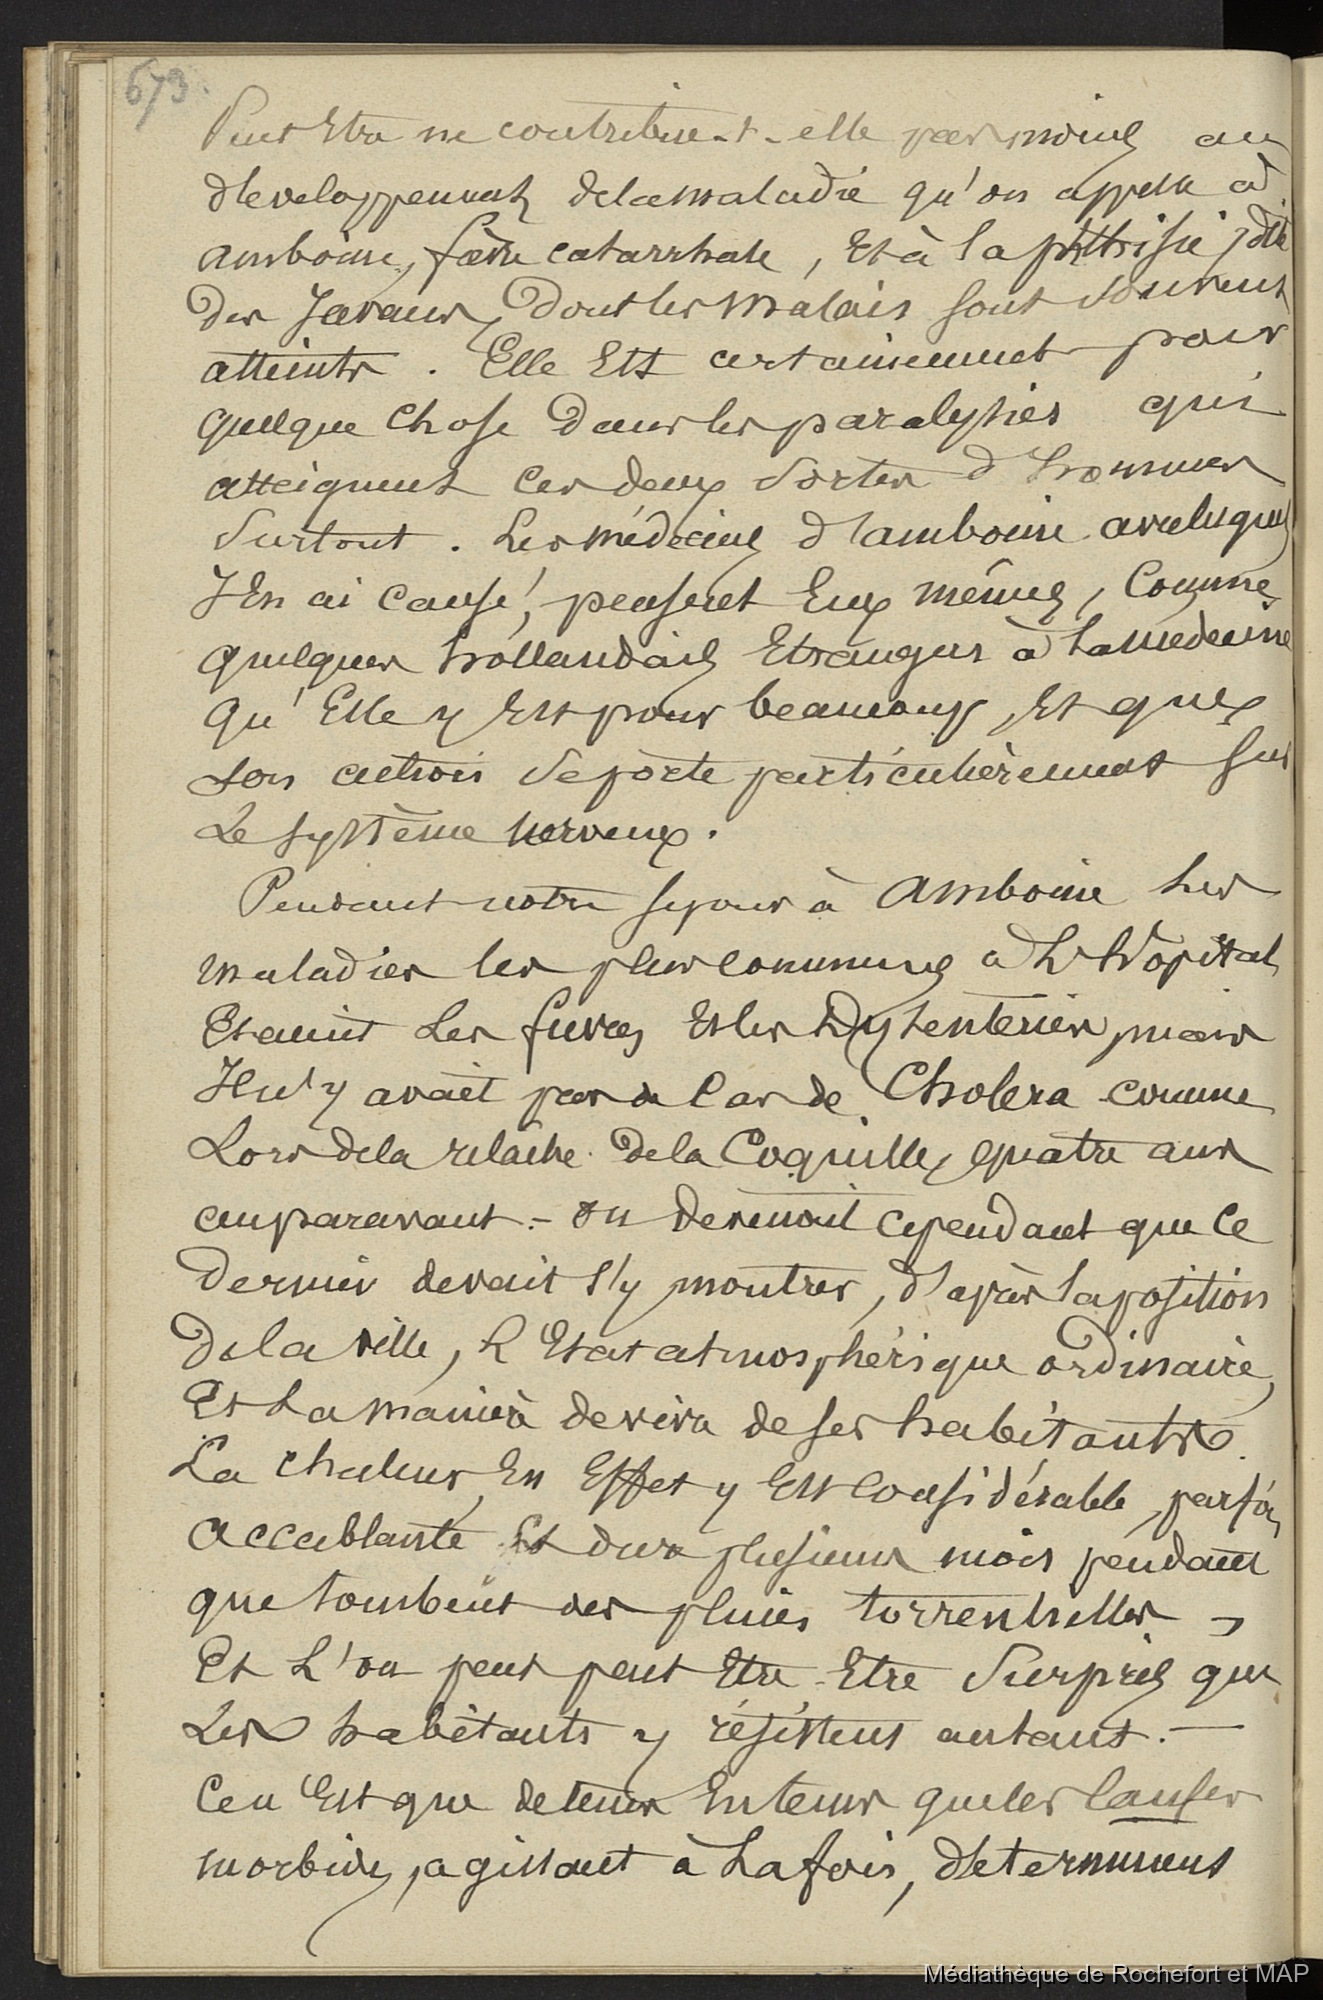 673.
Peut Etre ne contribue-t-elle pas moins au
developpement de la maladie qu'on appelle à
amboine, fièvre catarrhale, Et à la phthisie, dite
Des Javanes, Dont les malais sont souvent
atteints. Elle Est certainement pour
quelque chose Dans les paralysies qui
atteignent ces deux sortes d'hommes
surtout. Les médecins d'amboine avec lesquels
J'En ai causé, pensent Eux mêmes, Comme
quelques hollandais Etrangers à la médecine
qu'Elle y Est pour beaucoup, Et que
son action se porte particulièrement sur
Le système nerveux.
Pendant notre sejour à Amboine les
maladies les plus communes à L'hôpital
Etaient Les fievres Et les Dysenteries, mais
Il n'y avait pas de Cas de Cholera comme
Lors de la relâche de la Coquille, quatre ans
auparavant. - on devinait cependant que ce
dernier devait s'y montrer, d'après la position
De la ville, L'Etat atmosphérique ordinaire,
Et La manière de vivre de ses habitants.
La chaleur, En Effet y Est Considérable, parfois
accablante Et dure plusieurs mois pendant
que tombent des pluies torrentielles,
Et L'on peut peut Etre Etre surpris que
Les habitants y résistent autant. —
Ce n'Est que de tems En tems que les causes
morbides, agissant à La fois, déterminent
Médiathèque de Rochefort et MAP